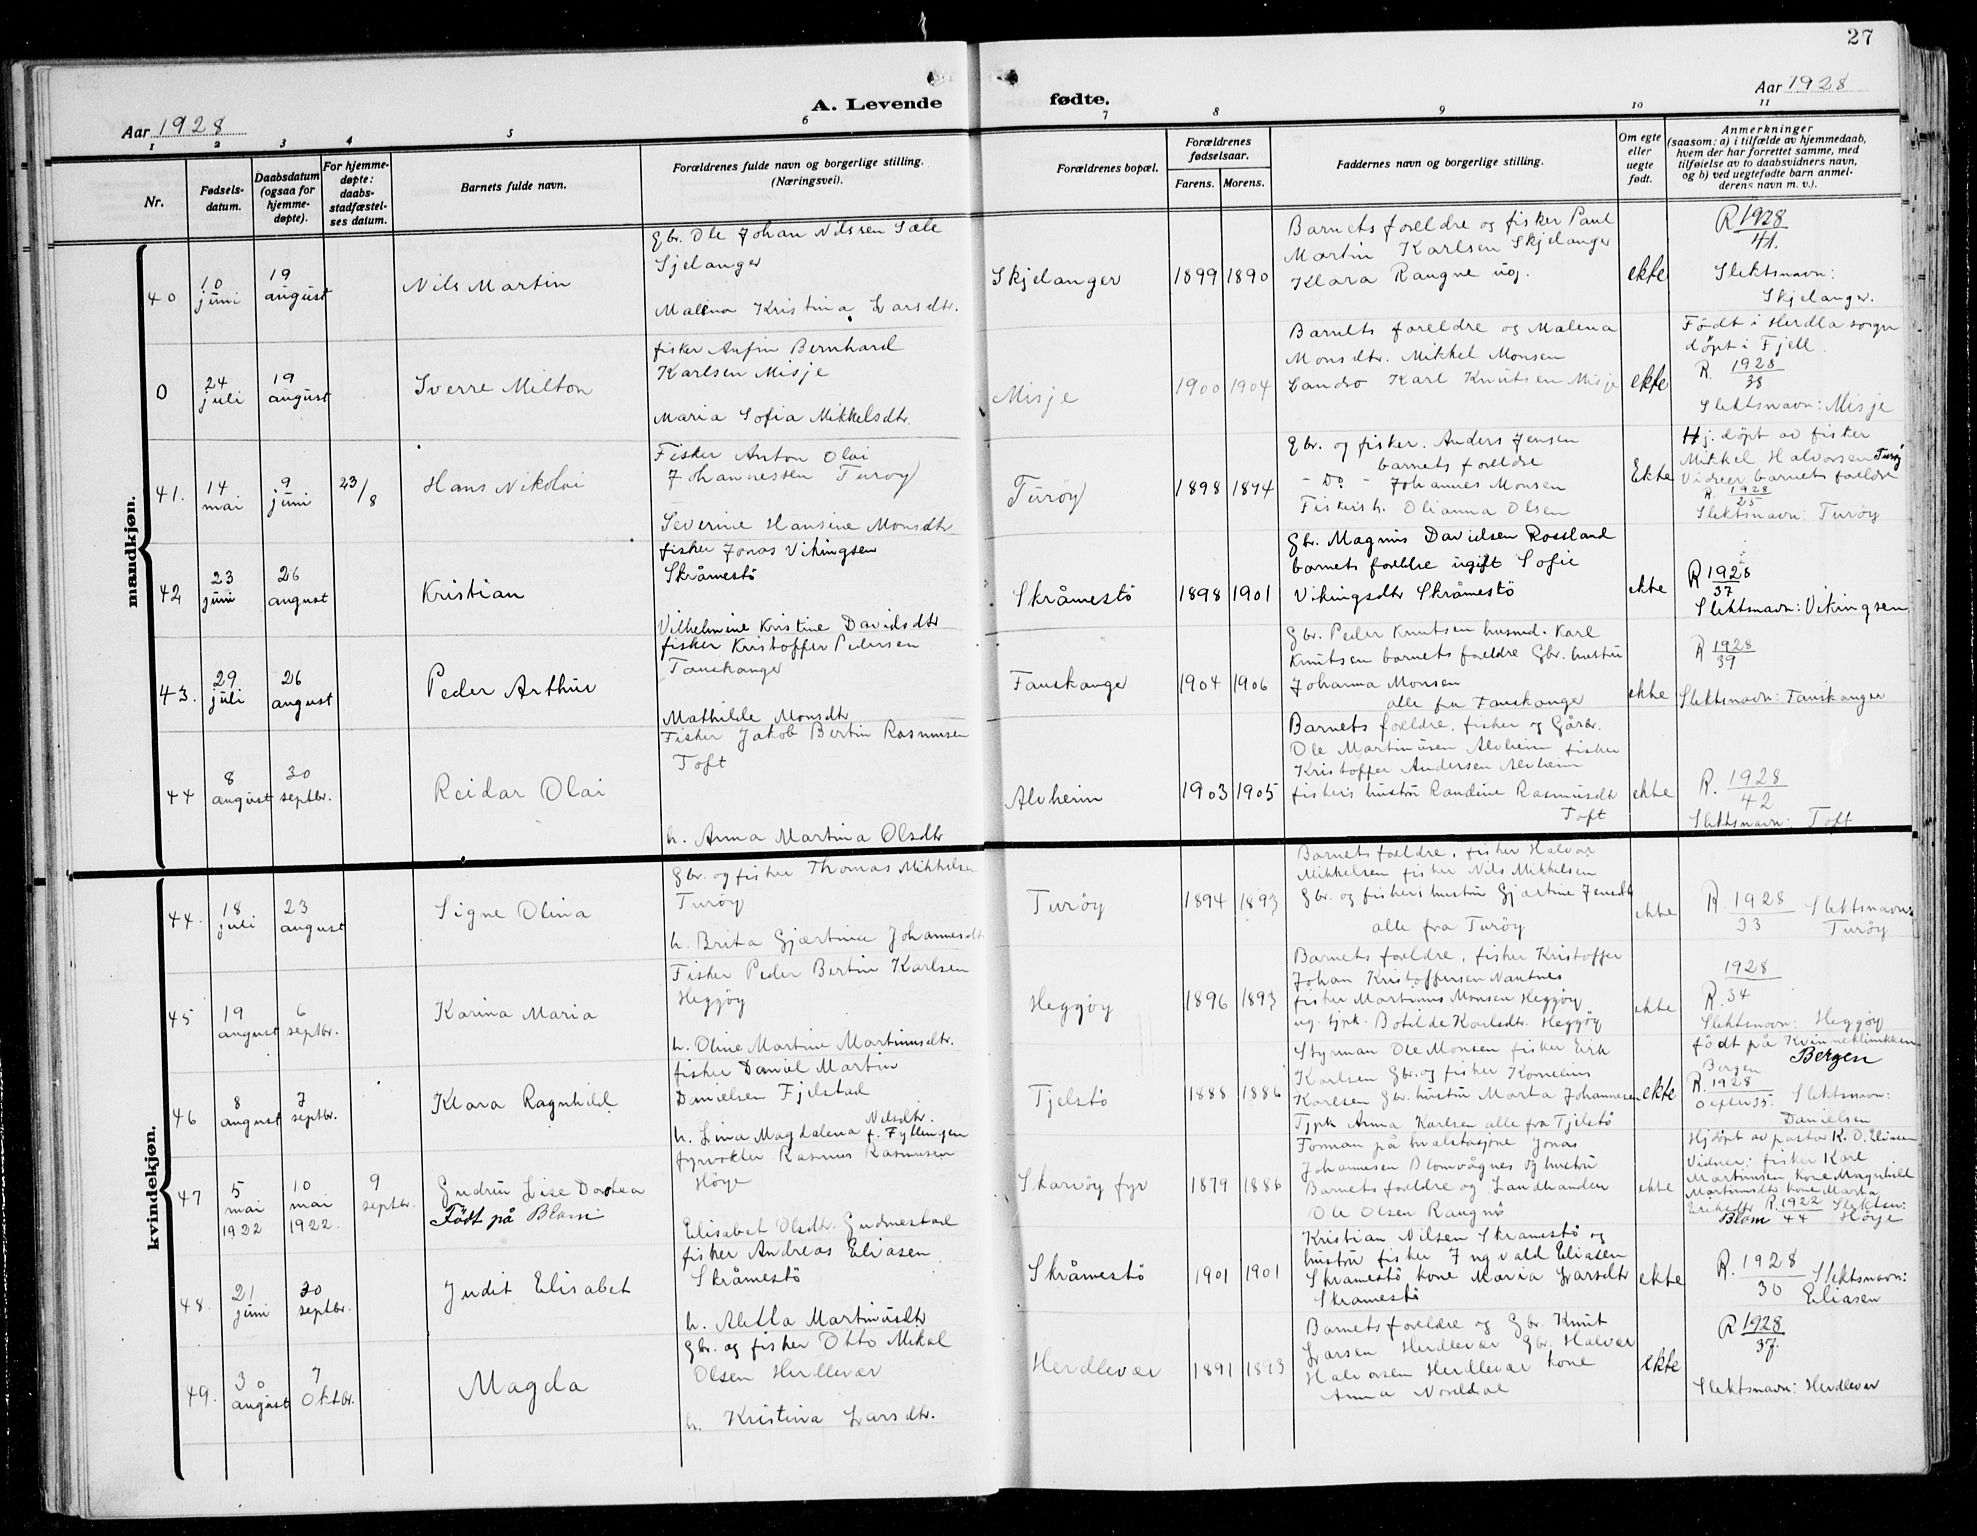 27
A. Levende fødte.
Aar 1928
Aar 1928
1 2 3 4 5 6 7 8 9 10 11
Nr.
Fødsels-
datum.
Daabsdatum
(ogsaa for
hjemme-
døpte).
For hjemme-
døpte:
daabs-
stadfæstel-
ses datum.
Barnets fulde navn.
Forældrenes fulde navn og borgerlige stilling.
(Næringsvei).
Forældrenes bopæl.
Forældrenes
fødselsaar.
Farens. Morens.
Faddernes navn og borgerlige stilling.
Om egte
eller
uegte
født.
Anmerkninger
(saasom: a) i tilfælde av hjemmedaab,
hvem der har forrettet samme, med
tilføielse av to daabsvidners navn,
og b) ved uegtefødte barn anmel-
derens navn m. v.).
mandkjøn.
40
10
juni
19
august
Nils Martin
Gbr. Ole Johan Nilsen Sæle
Sjelanger
Malena Kristina Larsdtr.
Skjelanger
1899 1890
Barnets foreldre og fisker Paul
Martin Karlsen Skjelanger
Klara Rangne ug.
ekte
R 1928
41.
Slektsnavn:
Skjelanger.
0
24
juli
19
august
Sverre Milton
fisker Anfin Bernhard
Karlsen Misje
Maria Sofia Mikkelsdtr.
Misje
1900 1904
Barnets foreldre og Malena
Monsdtr. Mikkel Monsen
Landro Karl Knutsen Misje
ekte
Födt i Herdla sogn
döpt i Fjell
R. 1928
38
Slektsnavn: Misje
41.
14
mai
9
juni
23/8
Hans Nikolai
Fisker Anton Olai
Johannessen Turøy
Severine Hansine Monsdtr
Turøy
1898 1894
Gbr. og fisker. Anders Jensen
barnets foreldre
- Do. - Johannes Monsen
Fiskersh. Olianna Olsen
Ekte
Hj. döpt av fisker
Mikkel Halvorsen Turøy
Vidner barnets foreldre
R. 1928
25
Slektsnavn: Turøy
42
23
juni
26
august
Kristian
fisker Jonas Vikingsen
Skråmestö
Vilhelmine Kristine Davidsdtr
Skråmestö
1898 1901
Gbr. Magnus Davidsen Rossland
barnets foreldre ugift Sofie
Vikingsdtr Skråmestö
ekte
R 1928
37
Slektsnavn: Vikingsen
43.
29
juli
26
august
Peder Arthur
fisker Kristoffer Pedersen
Fauskanger
Mathilde Monsdtr
Fauskanger
1904 1906
Gbr. Peder Knutsen husmd. Karl
Knutsen barnets foreldre Gbr. hustru
Johanna Monsen
alle fra Fauskanger
ekte
R 1928
39
Slektsnavn: Fauskanger
44
8
august
30
septbr.
Reidar Olai
Fisker Jakob Bertin Rasmusen
Toft
h. Anna Martina Olsdtr
Alvheim
1903 1905
Barnets foreldre, fisker og Gårbr.
Ole Martinusen Alvheim fisker
Kristoffer Andersen Alvheim
fiskers hustru Randine Rasmusdtr
Toft
ekte
R. 1928
42
Slektsnavn: Toft
kvindekjøn.
44.
18
juli
23
august
Signe Olina
Gbr. og fisker Thomas Mikkelsen
Turøy
h. Brita Gjærtine Johannesdtr
Turøy
1894 1893
Barnets foreldre, fisker Halvar
Mikkelsen fisker Nils Mikkelsen
Gbr. og fiskers hustru Gjærtine Jensdtr
alle fra Turøy
ekte
R. 1928
33
Slektsnavn:
Turøy
45
19
august
6
septbr.
Karina Maria
Fisker Peder Bertin Karlsen
Heggøy
h. Oline Martine Martinusdtr.
Heggøy
1896 1893
Barnets foreldre, fisker Kristoffer
Johan Kristoffersen Nautnes
fisker Martinus Monsen Heggøy
ug. tjpk. Botilde Karlsdtr. Heggøy
ekte
1928
R. 34
Slektsnavn: Heggøy
46
8
august
7
septbr.
Klara Ragnhild
fisker Daniel Martin
Danielsen Fjelstad
h. Lina Magdalena Nilsdtr.
f. Fyllingen
Tjelstö
1888 1886
Styrman Ole Monsen fisker Erik
Karlsen Gbr. og fisker Kornelius
Karlsen Gbr. hustru Marta Johannesen
Tjpk Anna Karlsen alle fra Tjelstö
ekte
födt på Kvinneklinikken
Bergen
Bergen
R. 1928
35.
Slektsnavn:
Danielsen
47
5
mai
1922
10
mai
1922.
9
septbr.
Gudrun Lise Dorotea
Födt på Blom
fyrvokter Rasmus Rasmusen
Höye
Elisabet Olsdtr. Gudmestad
Skarvöy fyr
1879 1886
Forman på hvalstasjone Jonas
Johannesen Blomvågnes og hustru
Barnets foreldre og Landhandler
Ole Olsen Rangnö
ekte
Hjdöpt av pastor K. O. Eliasen
Vidner: fisker Karl
Martinsen Kone Magnhild
Martinusdtr kone Marta
R. 1922
44
Slektsn:
Blom Höye
48.
21
juni
30
septbr.
Judit Elisabet
fisker Andreas Eliasen
Skråmestö
h. Aletta Martinusdtr
Skråmestö
1901 1901
Kristian Nilsen Skramestö og
hustru fisker Ingvald Eliasen
Skramestö kone Maria Larsdtr
Skramestö
ekte
R. 1928
30
Slektsnavn:
Eliasen
49.
30
august
7
Oktbr.
Magda
Gbr. og fisker Otto Mikal
Olsen Herdlevær
h. Kristina Larsdtr.
Herdlevær
1891 1893
Barnets foreldre og Gbr. Knut
Larsen Herdlevær Gbr. Halvar
Halvorsen Herdlevær kone
Anna Nordal
ekte
R 1928
37.
Slektsnavn: Herdlevær